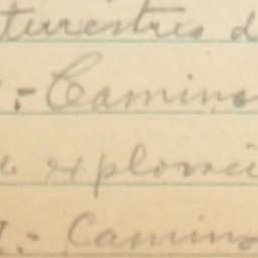 terrestres d
.- Camino
explorac
.- Camino